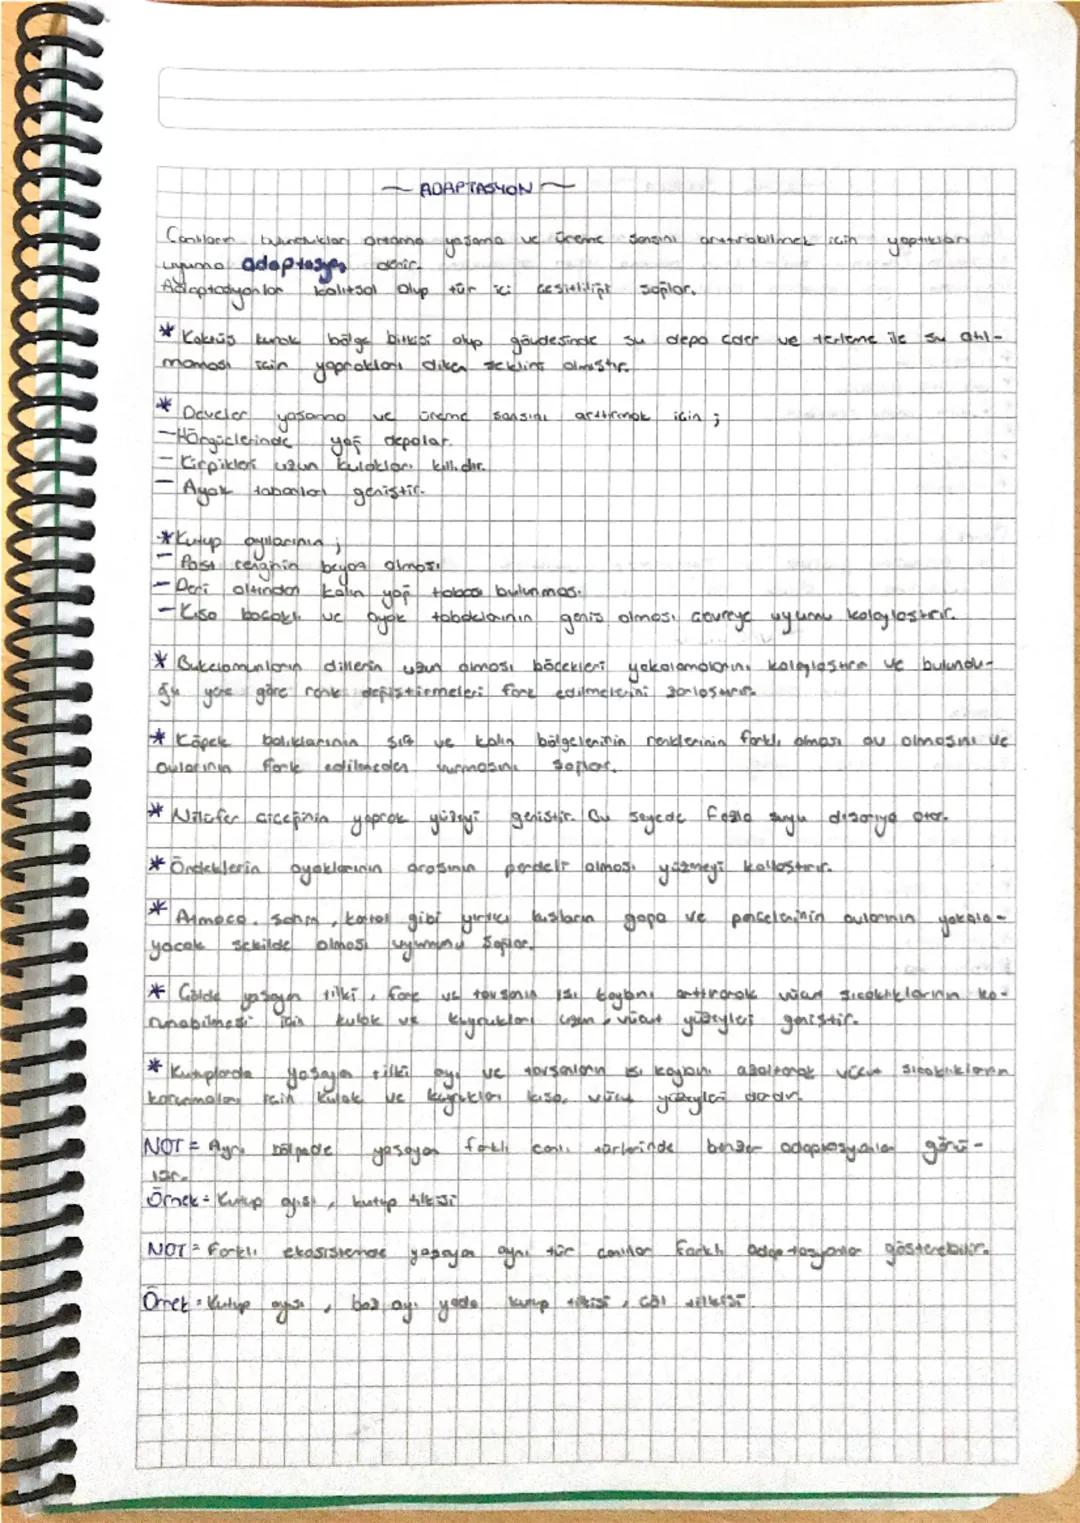 ~ ADAPTASYON ~
Canlıların bulundukları ortama yaşama ve üreme şansını arttırabilmek için yaptıkları
uyuma adaptasyon denir.
Adaptasyonlar kalıtsal olup tür içi çeşitliliği sağlar.
* Kaktüs kurak bölge bitkisi olup gövdesinde su depo eder ve terleme ile su atıl-
maması için yaprakları diken şeklini almıştır.
* Develer yaşama ve üreme şansını arttırmak için ;
- Hörgüçlerinde yağ depolar.
- Kirpikleri uzun kulakları kıllıdır.
- Ayak tabanları geniştir.
* Kutup ayılarının ;
- Post renginin beyaz olması
- Deri altından kalın yağ tabaka bulunması.
- Kısa bacaklı ve ayak tabaklarının geniş olması çevreye uyumu kolaylaştırır.
* Bukelamunların dillerin uzun olması böcekleri yakalamalarını kolaylaştırır ve bulundu-
ğu yere göre renk değiştirmeleri fark edilmelerini zorlaştırır.
* Köpek balıklarının sırt ve kalın bölgelerinin renklerinin farklı olması av olmasını ve
avlarının fark edilmeden vurmasını sağlar.
* Nilüfer çiçeğinin yaprak yüzeyi geniştir. Bu sayede fazla suyu dışarıya atar.
* Ördeklerin ayaklarının arasının perdeli olması yüzmeyi kollaştırır.
* Atmaca, şahin, kartal gibi yırtıcı kuşların gaga ve pençelerinin avlarının yakala-
yacak şekilde olması uyumunu sağlar.
* Çölde yaşayan tilki, fare ve tavşanın ısı kaybını arttırarak vücut sıcaklıklarının ko-
runabilmesi için kulak ve kuyrukları uzun, vücut yüzeyleri geniştir.
* Kutuplarda yaşayan tilki ayı ve tavşanların ısı kaybını azaltarak vücut sıcaklıkların
korumaları için kulak ve kuyrukları kısa, vücut yüzeyleri dardır.
NOT = Aynı bölgede yaşayan farklı canlı türlerinde benzer adaptasyonlar görü-
lür.
Örnek = Kutup ayısı, kutup tilkisi
NOT = Farklı ekosistemde yaşayan aynı tür canlılar farklı adaptasyonlar gösterebilir.
Örnek = Kutup ayısı, boz ayı yada kutup tilkisi, çöl tilkisi.